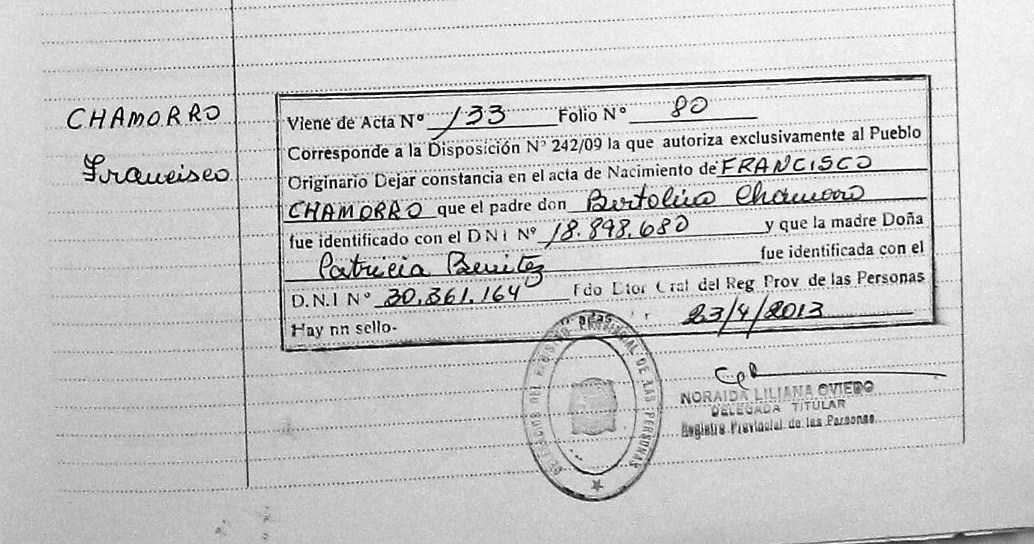 CHAMORRO
Francisco
Viene de Acta Nº 133 Folio Nº 80
Corresponde a la Disposición Nº 242/09 la que autoriza exclusivamente al Pueblo
Originario Dejar constancia en el acta de Nacimiento de FRANCISCO
CHAMORRO que el padre don Bertolino Chamorro
fue identificado con el DNI Nº 18.898.680 y que la madre Doña
Patricia Benitez fue identificada con el
D.N.I Nº 30.361.164 Fdo Dtor Gral del Reg Prov de las Personas
Hay nn sello- 23/4/2013
DELEGADA TITULAR
NORAIDA LILIANA OVIEDO
Registro Provincial de las Personas
REGISTRO PROVINCIAL DE LAS PERSONAS